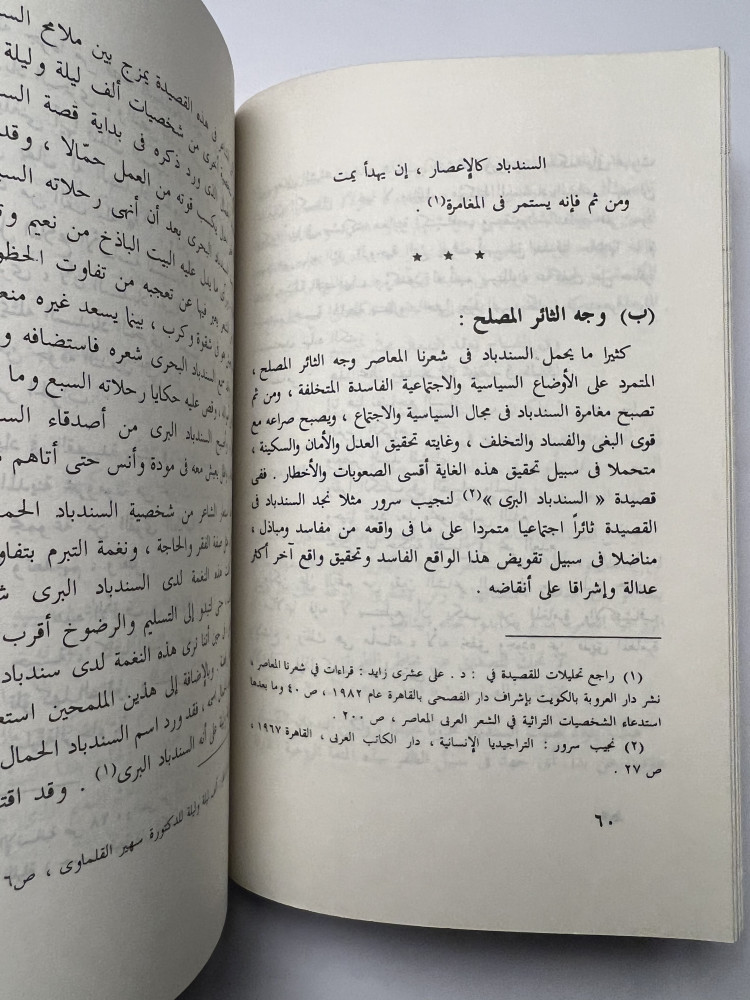 السندباد كالإعصار ، إن يهدأ يمت
ومن ثم فإنه يستمر فى المغامرة(١) .
★ ★ ★
(ب) وجه الثائر المصلح :
كثيرا ما يحمل السندباد فى شعرنا المعاصر وجه الثائر المصلح ،
المتمرد على الأوضاع السياسية والاجتماعية الفاسدة المتخلفة ، ومن ثم
تصبح مغامرة السندباد فى مجال السياسية والاجتماع ، ويصبح صراعه مع
قوى البغى والفساد والتخلف ، وغايته تحقيق العدل والأمان والسكينة ،
متحملا فى سبيل تحقيق هذه الغاية أقسى الصعوبات والأخطار . ففى
قصيدة « السندباد البرى »(٢) لنجيب سرور مثلا نجد السندباد فى
القصيدة ثائراً اجتماعيا متمردا على ما فى واقعه من مفاسد ومباذل ،
مناضلا فى سبيل تقويض هذا الواقع الفاسد وتحقيق واقع آخر أكثر
عدالة وإشراقا على أنقاضه .
(١) راجع تحليلات للقصيدة في : د . على عشرى زايد : قراءات في شعرنا المعاصر ،
نشر دار العروبة بالكويت بإشراف دار الفصحى بالقاهرة عام ١٩٨٢ ، ص ٤٠ وما بعدها
استدعاء الشخصيات التراثية في الشعر العربى المعاصر ، ص ٢٠٠ .
(٢) نجيب سرور : التراجيديا الإنسانية ، دار الكاتب العربى ، القاهرة ١٩٦٧ ،
ص ٢٧ .
٦٠
فى هذه القصيدة يمزج بين ملامح
أخرى من شخصيات ألف ليلة وليلة
الذى ورد ذكره فى بداية قصة
يكسب قوته من العمل حمّالا ،
البحرى بعد أن أنهى رحلاته
عليه البيت الباذخ من نعيم
فيها عن تعجبه من تفاوت
شقوة وكرب ، بينما يسعد غيره
السندباد البحرى شعره فاستضافه
وقص عليه حكايا رحلاته السبع وما
السندباد البرى من أصدقاء
يعيش معه فى مودة وأنس حتى أتاهم
الشاعر من شخصية السندباد
صفة الفقر والحاجة ، ونغمة التبرم
هذه النغمة لدى السندباد البرى
إلى التسليم والرضوخ أقرب
أننا نرى هذه النغمة لدى سندباد
وبالإضافة إلى هذين الملمحين
فقد ورد اسم السندباد الحمال
على أنه السندباد البرى(١) . وقد
ليلة وليلة للدكتورة سهير القلماوى ، ص